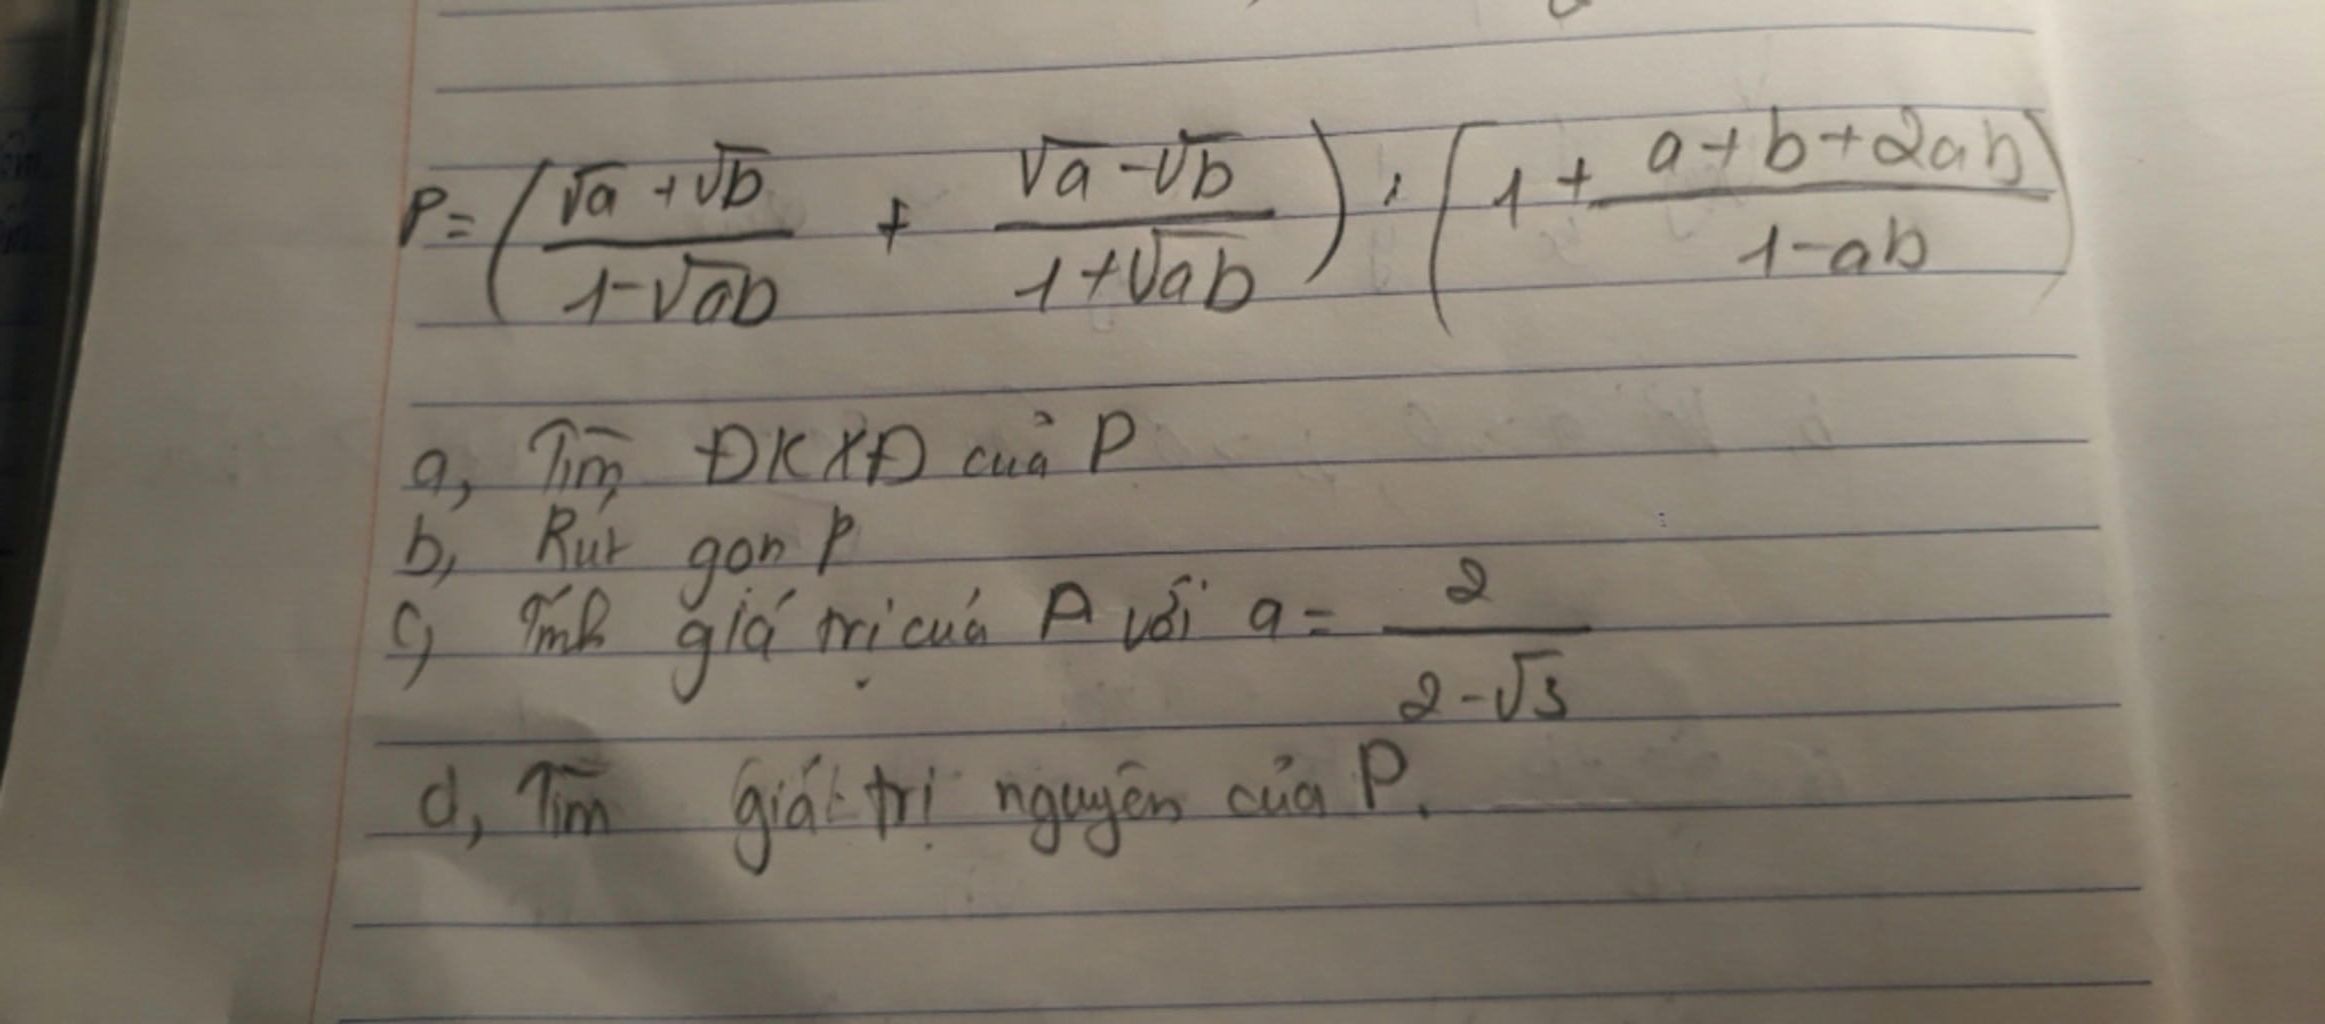 P = (√a + √b / 1 - √ab + √a - √b / 1 + √ab) : (1 + a + b + 2ab / 1 - ab)
a, Tìm ĐKXĐ của P
b, Rút gọn P
c, Tính giá trị của P với a = 2 / 2 - √3
d, Tìm giá trị nguyên của P.